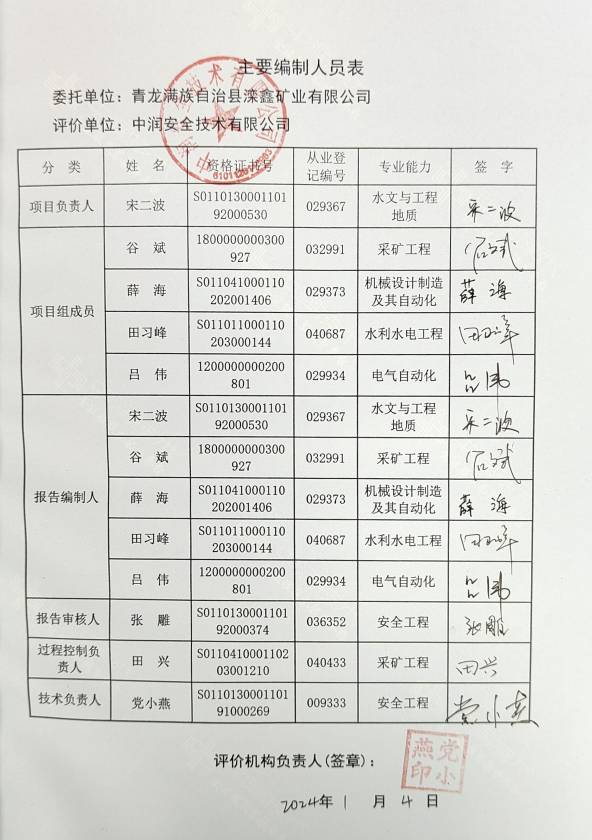 主要编制人员表
委托单位：青龙满族自治县滦鑫矿业有限公司
评价单位：中润安全技术有限公司
分 类 姓 名 资格证书号 从业登记编号 专业能力 签 字
项目负责人 宋二波 S011013000110192000530 029367 水文与工程地质 宋二波
项目组成员 谷 斌 1800000000300927 032991 采矿工程 谷斌
薛 海 S011041000110202001406 029373 机械设计制造及其自动化 薛海
田习峰 S011011000110203000144 040687 水利水电工程 田习峰
吕 伟 1200000000200801 029934 电气自动化 吕伟
报告编制人 宋二波 S011013000110192000530 029367 水文与工程地质 宋二波
谷 斌 1800000000300927 032991 采矿工程 谷斌
薛 海 S011041000110202001406 029373 机械设计制造及其自动化 薛海
田习峰 S011011000110203000144 040687 水利水电工程 田习峰
吕 伟 1200000000200801 029934 电气自动化 吕伟
报告审核人 张 雕 S011013000110192000374 036352 安全工程 张雕
过程控制负责人 田 兴 S011041000110203001210 040433 采矿工程 田兴
技术负责人 党小燕 S011013000110191000269 009333 安全工程 党小燕
评价机构负责人(签章)：
党小燕印
2024年 1 月 4 日